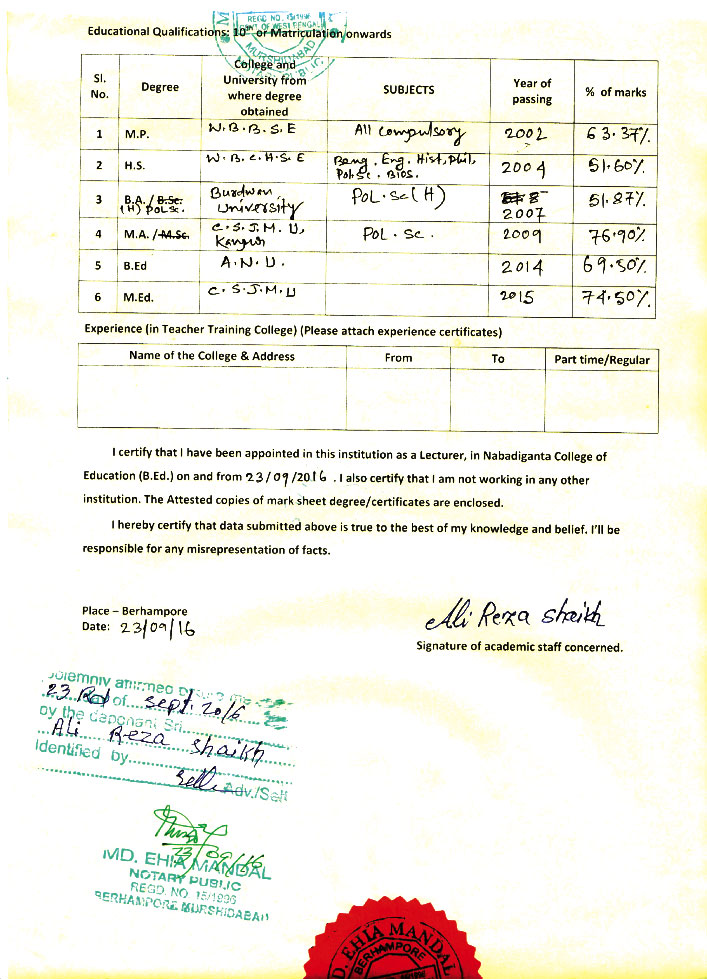 REGD NO. 15/1996
GOVT OF WEST BENGAL
Educational Qualifications: 10th or Matriculation onwards
MURSHIDABAD
Sl. No. Degree College and University from where degree obtained SUBJECTS Year of passing % of marks
1 M.P. W.B.B.S.E All Compulsory 2002 63.37%
2 H.S. W.B.C.H.S.E Beng. Eng. Hist, Phil, Pol.Sc. Bios. 2004 51.60%
3 B.A./B.Sc. (H) Pol Sc. Burdwan University Pol.Sc(H) 2007 51.87%
4 M.A./M.Sc. C.S.J.M.U, Kanpur Pol.Sc. 2009 76.90%
5 B.Ed A.N.U. 2014 69.50%
6 M.Ed. C.S.J.M.U 2015 74.50%
Experience (in Teacher Training College) (Please attach experience certificates)
Name of the College & Address From To Part time/Regular
I certify that I have been appointed in this institution as a Lecturer, in Nabadiganta College of
Education (B.Ed.) on and from 23/09/2016 . I also certify that I am not working in any other
institution. The Attested copies of mark sheet degree/certificates are enclosed.
I hereby certify that data submitted above is true to the best of my knowledge and belief. I'll be
responsible for any misrepresentation of facts.
Place – Berhampore
Date: 23/09/16
Ali Reza Shaikh
Signature of academic staff concerned.
Solemnly affirmed before me
23 Rd of Sept. 2016
by the deponent Sri
Ali Reza Shaikh
Identified by
Self Adv./Self
23/09/16
MD. EHIA MANDAL
NOTARY PUBLIC
REGD. NO. 15/1996
BERHAMPORE MURSHIDABAD
MD. EHIA MANDAL
BERHAMPORE